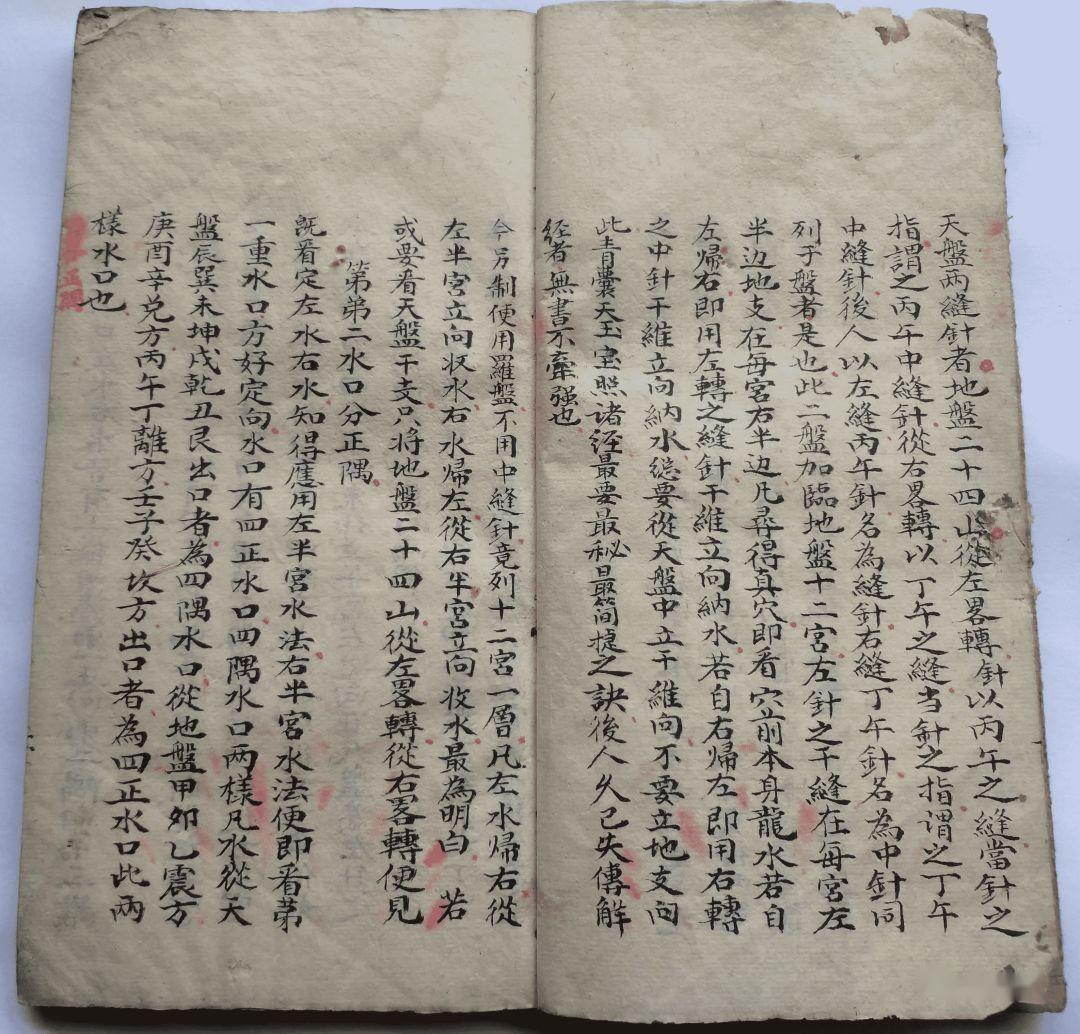 天盤兩縫針者地盤二十四山從左畧轉針以丙午之縫當針之
指謂之丙午中縫針從右畧轉以丁午之縫当針之指谓之丁午
中縫針後人以左縫丙午針名為縫針右縫丁午針名為中針同
列于盤者是也此二盤加臨地盤十二宮左針之干縫在每宮左
半边地支在每宮右半边凡尋得真穴即看穴前本身龍水若自
左帰右即用左轉之縫針干維立向納水若自右帰左即用右轉
之中針干維立向納水総要從天盤中立干維向不要立地支向
此青囊天玉宝照诸经最要最秘最简捷之訣後人久已失傳解
经者無書不牽强也
今另制便用羅盤不用中縫針竟列十二宮一層凡左水帰右從
左半宮立向收水右水帰左從右半宮立向收水最為明白若
或要看天盤干支只將地盤二十四山從左畧轉從右畧轉便見
第弟二水口分正隅
既看定左水右水知得應用左半宮水法右半宮水法便即看苐
一重水口方好定向水口有四正水口四隅水口两樣凡水從天
盤辰巽未坤戌乾丑艮出口者為四隅水口從地盤甲卯乙震方
庚酉辛兑方丙午丁離方壬子癸坎方出口者為四正水口此兩
樣水口也